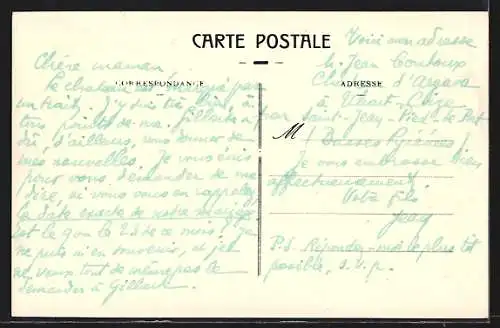 CARTE POSTALE
CORRESPONDANCE
ADRESSE
Chère maman
Le chateau est
un trait. J'y suis très bien à
tous points de vue. Gilberte a
dû, d'ailleurs, vous donner de
mes nouvelles. Je vous écris
pour vous demander de me
dire, si vous vous en rappelez,
la date exacte de notre mariage
est le 9 ou le 22 de ce mois. Je
ne puis m'en souvenir, et je
ne veux tout de même pas le
demander à Gilberte.
Voici mon adresse
M. Jean
d'
à
par Saint-Jean-Pied-de-Port
M
Basses Pyrénées
je vous embrasse bien
affectueusement.
Votre fils
Jean
P.S. Répondez-moi le plus tôt
possible, s.v.p.